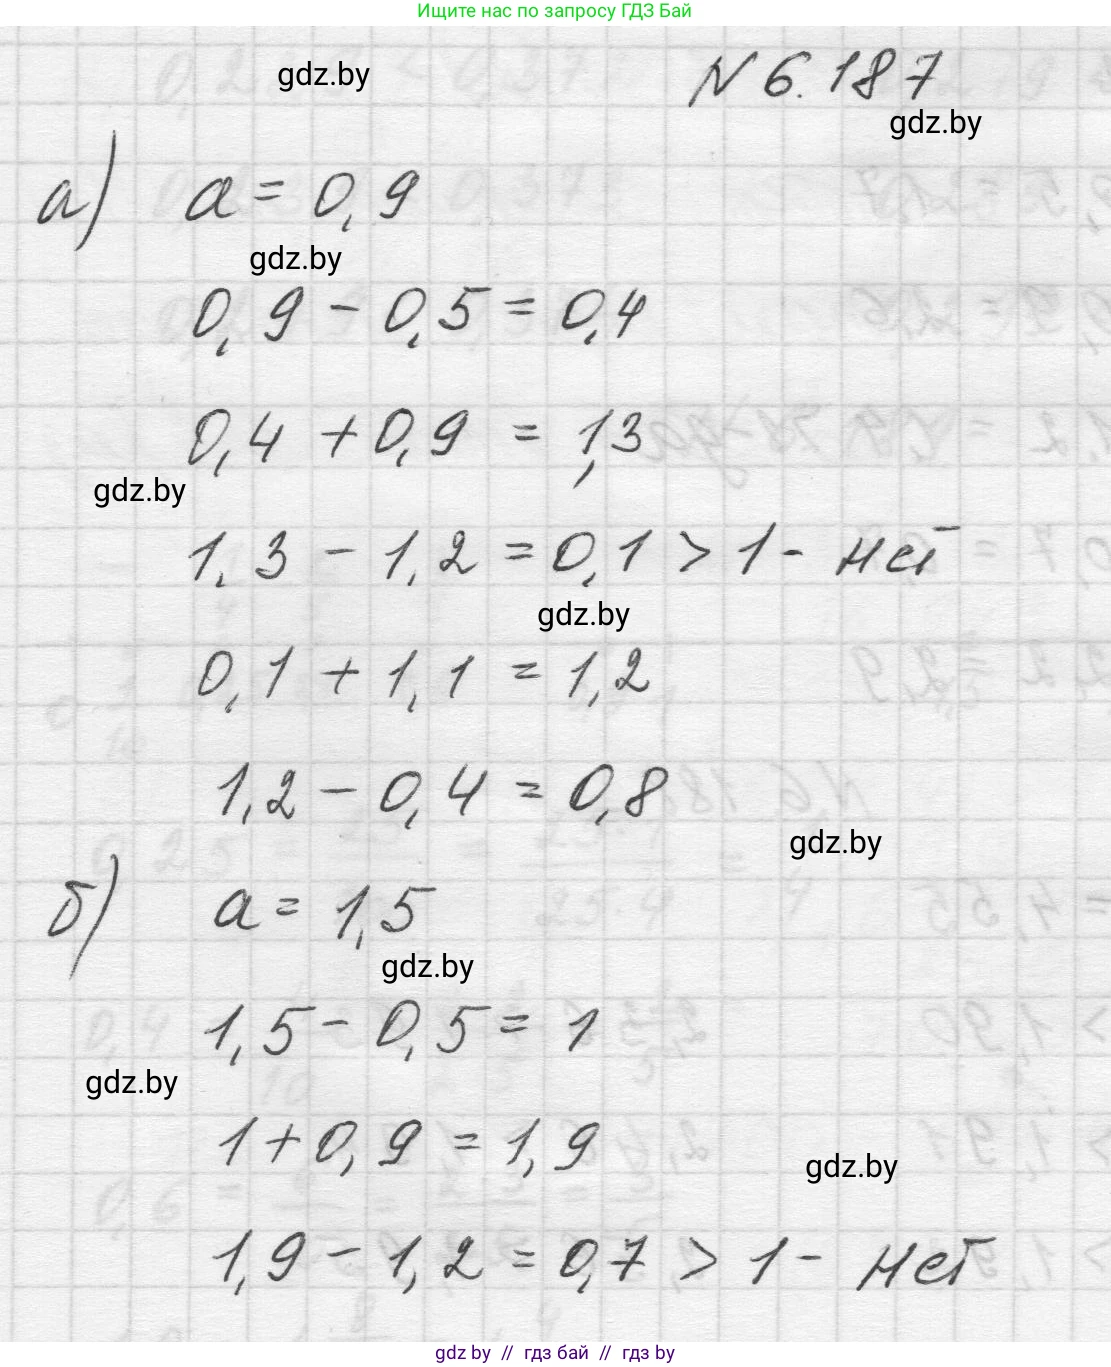 Ищите нас по запросу ГДЗ Бай
gdz.by
N 6.187
gdz.by
а) a = 0,9
gdz.by
0,9 - 0,5 = 0,4
0,4 + 0,9 = 1,3
gdz.by
1,3 - 1,2 = 0,1 > 1 - нет
gdz.by
0,1 + 1,1 = 1,2
1,2 - 0,4 = 0,8
gdz.by
б) a = 1,5
gdz.by
1,5 - 0,5 = 1
gdz.by
1 + 0,9 = 1,9
gdz.by
1,9 - 1,2 = 0,7 > 1 - нет
gdz by // гдз бай // гдз by